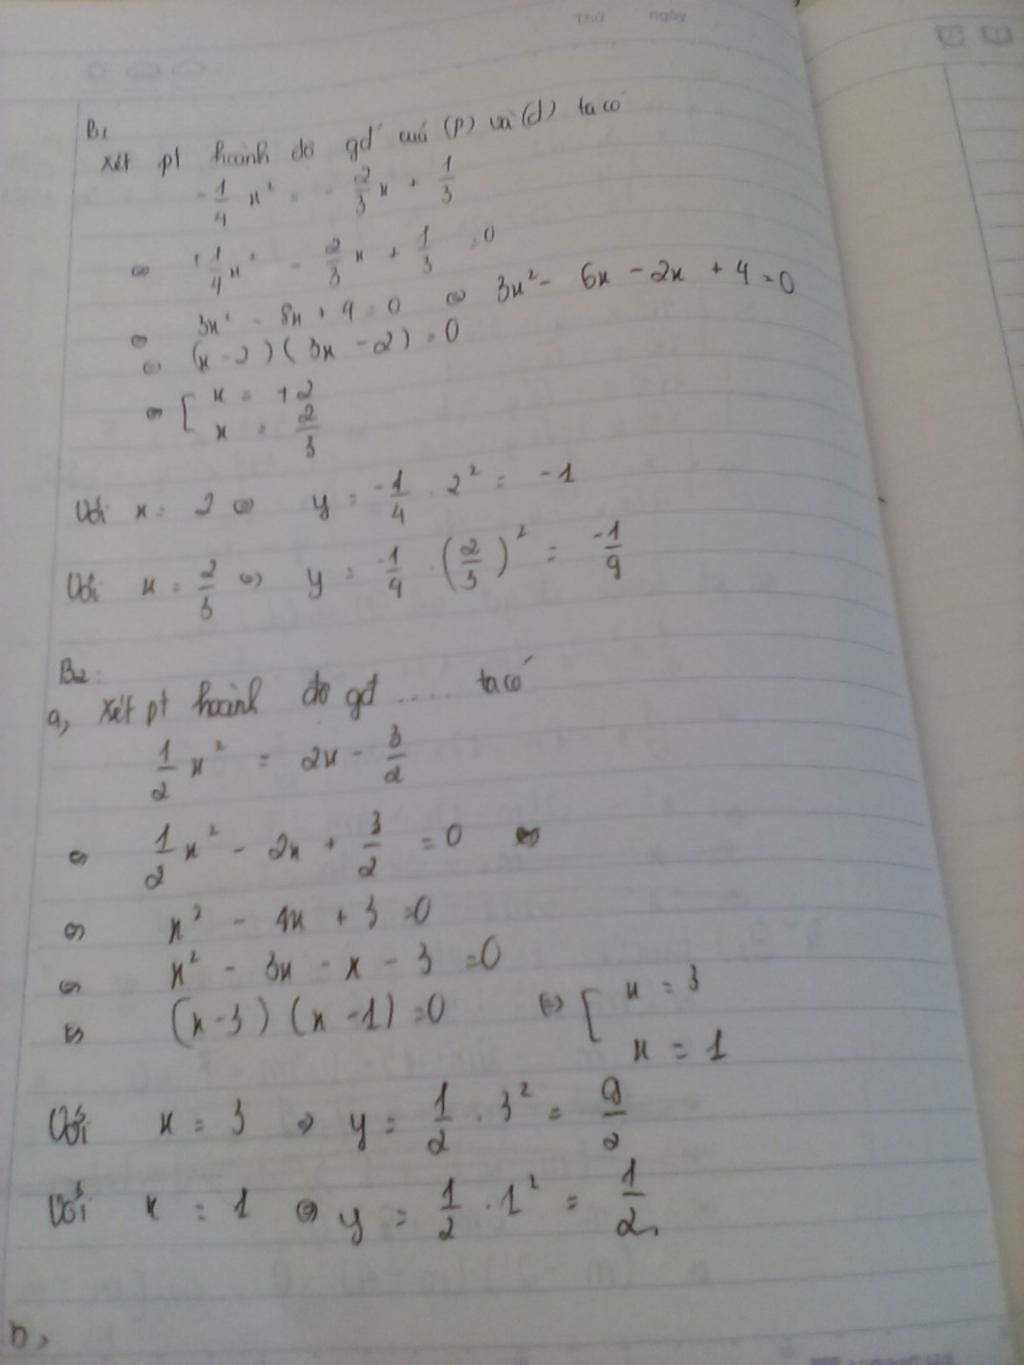 Thứ ngày
B1
Xét pt hoành độ gđ của (P) và (d) ta có
-1/4 x² = -2/3 x + 1/3
⇔ +1/4 x² - 2/3 x + 1/3 = 0
⇔ 3x² - 8x + 4 = 0 ⇔ 3x² - 6x - 2x + 4 = 0
⇔ (x - 2)(3x - 2) = 0
⇔ [ x = +2
x = 2/3
Với x = 2 ⇔ y = -1/4 . 2² = -1
Với x = 2/3 ⇔ y = -1/4 . (2/3)² = -1/9
B2:
a, Xét pt hoành độ gđ .... ta có
1/2 x² = 2x - 3/2
⇔ 1/2 x² - 2x + 3/2 = 0
⇔ x² - 4x + 3 = 0
⇔ x² - 3x - x - 3 = 0
⇔ (x - 3)(x - 1) = 0 ⇔ [ x = 3
x = 1
Với x = 3 ⇒ y = 1/2 . 3² = 9/2
Với x = 1 ⇔ y = 1/2 . 1² = 1/2
b,